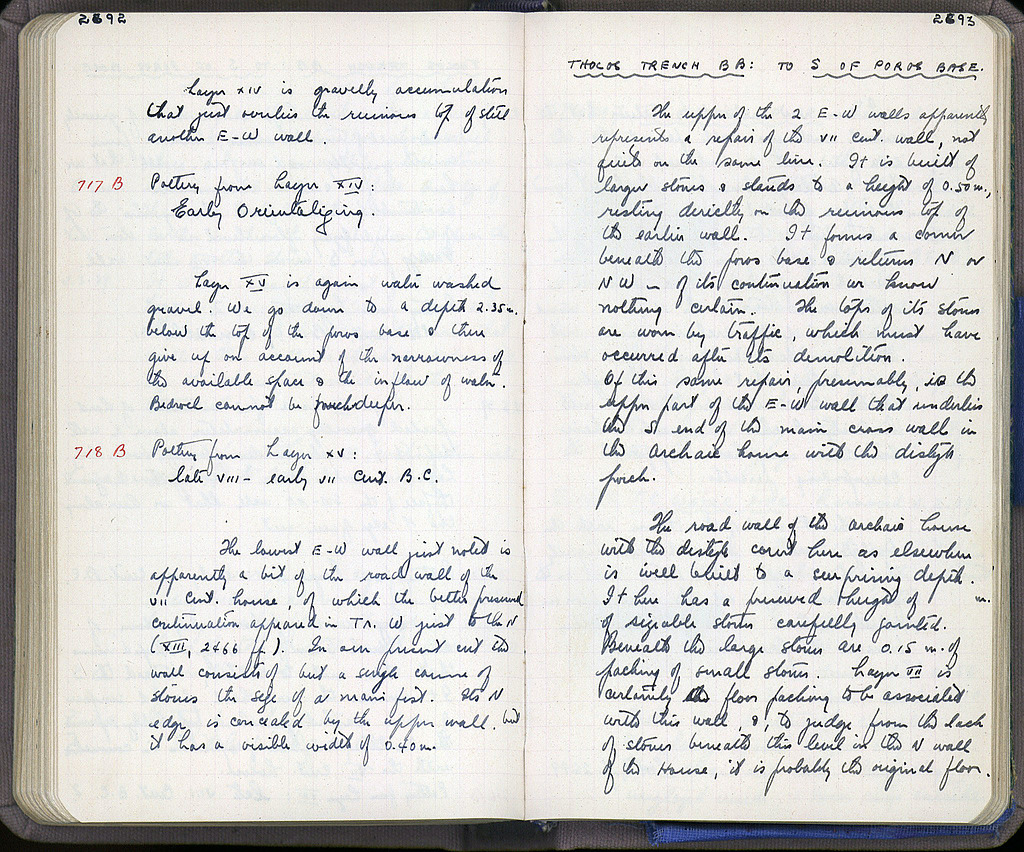 2692
Layer XIV is gravelly accumulation
that just overlies the ruinous top of still
another E-W wall.
717 B Pottery from Layer XIV:
Early Orientalizing.
Layer XV is again water washed
gravel. We go down to a depth 2.35 m.
below the top of the poros base & there
give up on account of the narrowness of
the available space & the inflow of water.
Bedrock cannot be much deeper.
718 B Pottery from Layer XV:
late VIII - early VII Cent. B.C.
The lowest E-W wall just noted is
apparently a bit of the road wall of the
VII Cent. house, of which the better preserved
continuation appeared in Tr. W just to the N
(XIII, 2466 f.). In our present cut the
wall consists of but a single course of
stones the size of a man's fist. Its N
edge is concealed by the upper wall, but
it has a visible width of 0.40 m.
2693
THOLOS TRENCH BB: TO S OF POROS BASE.
The upper of the 2 E-W walls apparently
represents a repair of the VII Cent. wall, not
quite on the same line. It is built of
larger stones & stands to a height of 0.50 m.,
resting directly on the ruinous top of
the earlier wall. It forms a corner
beneath the poros base & returns N or
NW - of its continuation we know
nothing certain. The tops of its stones
are worn by traffic, which must have
occurred after its demolition.
Of this same repair, presumably, is the
upper part of the E-W wall that underlies
the S end of the main cross wall in
the Archaic house with the distyle
porch.
The road wall of the archaic house
with the distyle court here as elsewhere
is well built to a surprising depth.
It here has a preserved height of m.
of sizeable stones carefully jointed.
Beneath the large stones are 0.15 m. of
packing of small stones. Layer VII is
certainly floor packing to be associated
with this wall, &, to judge from the lack
of stones beneath this level in the N wall
of the House, it is probably the original floor.